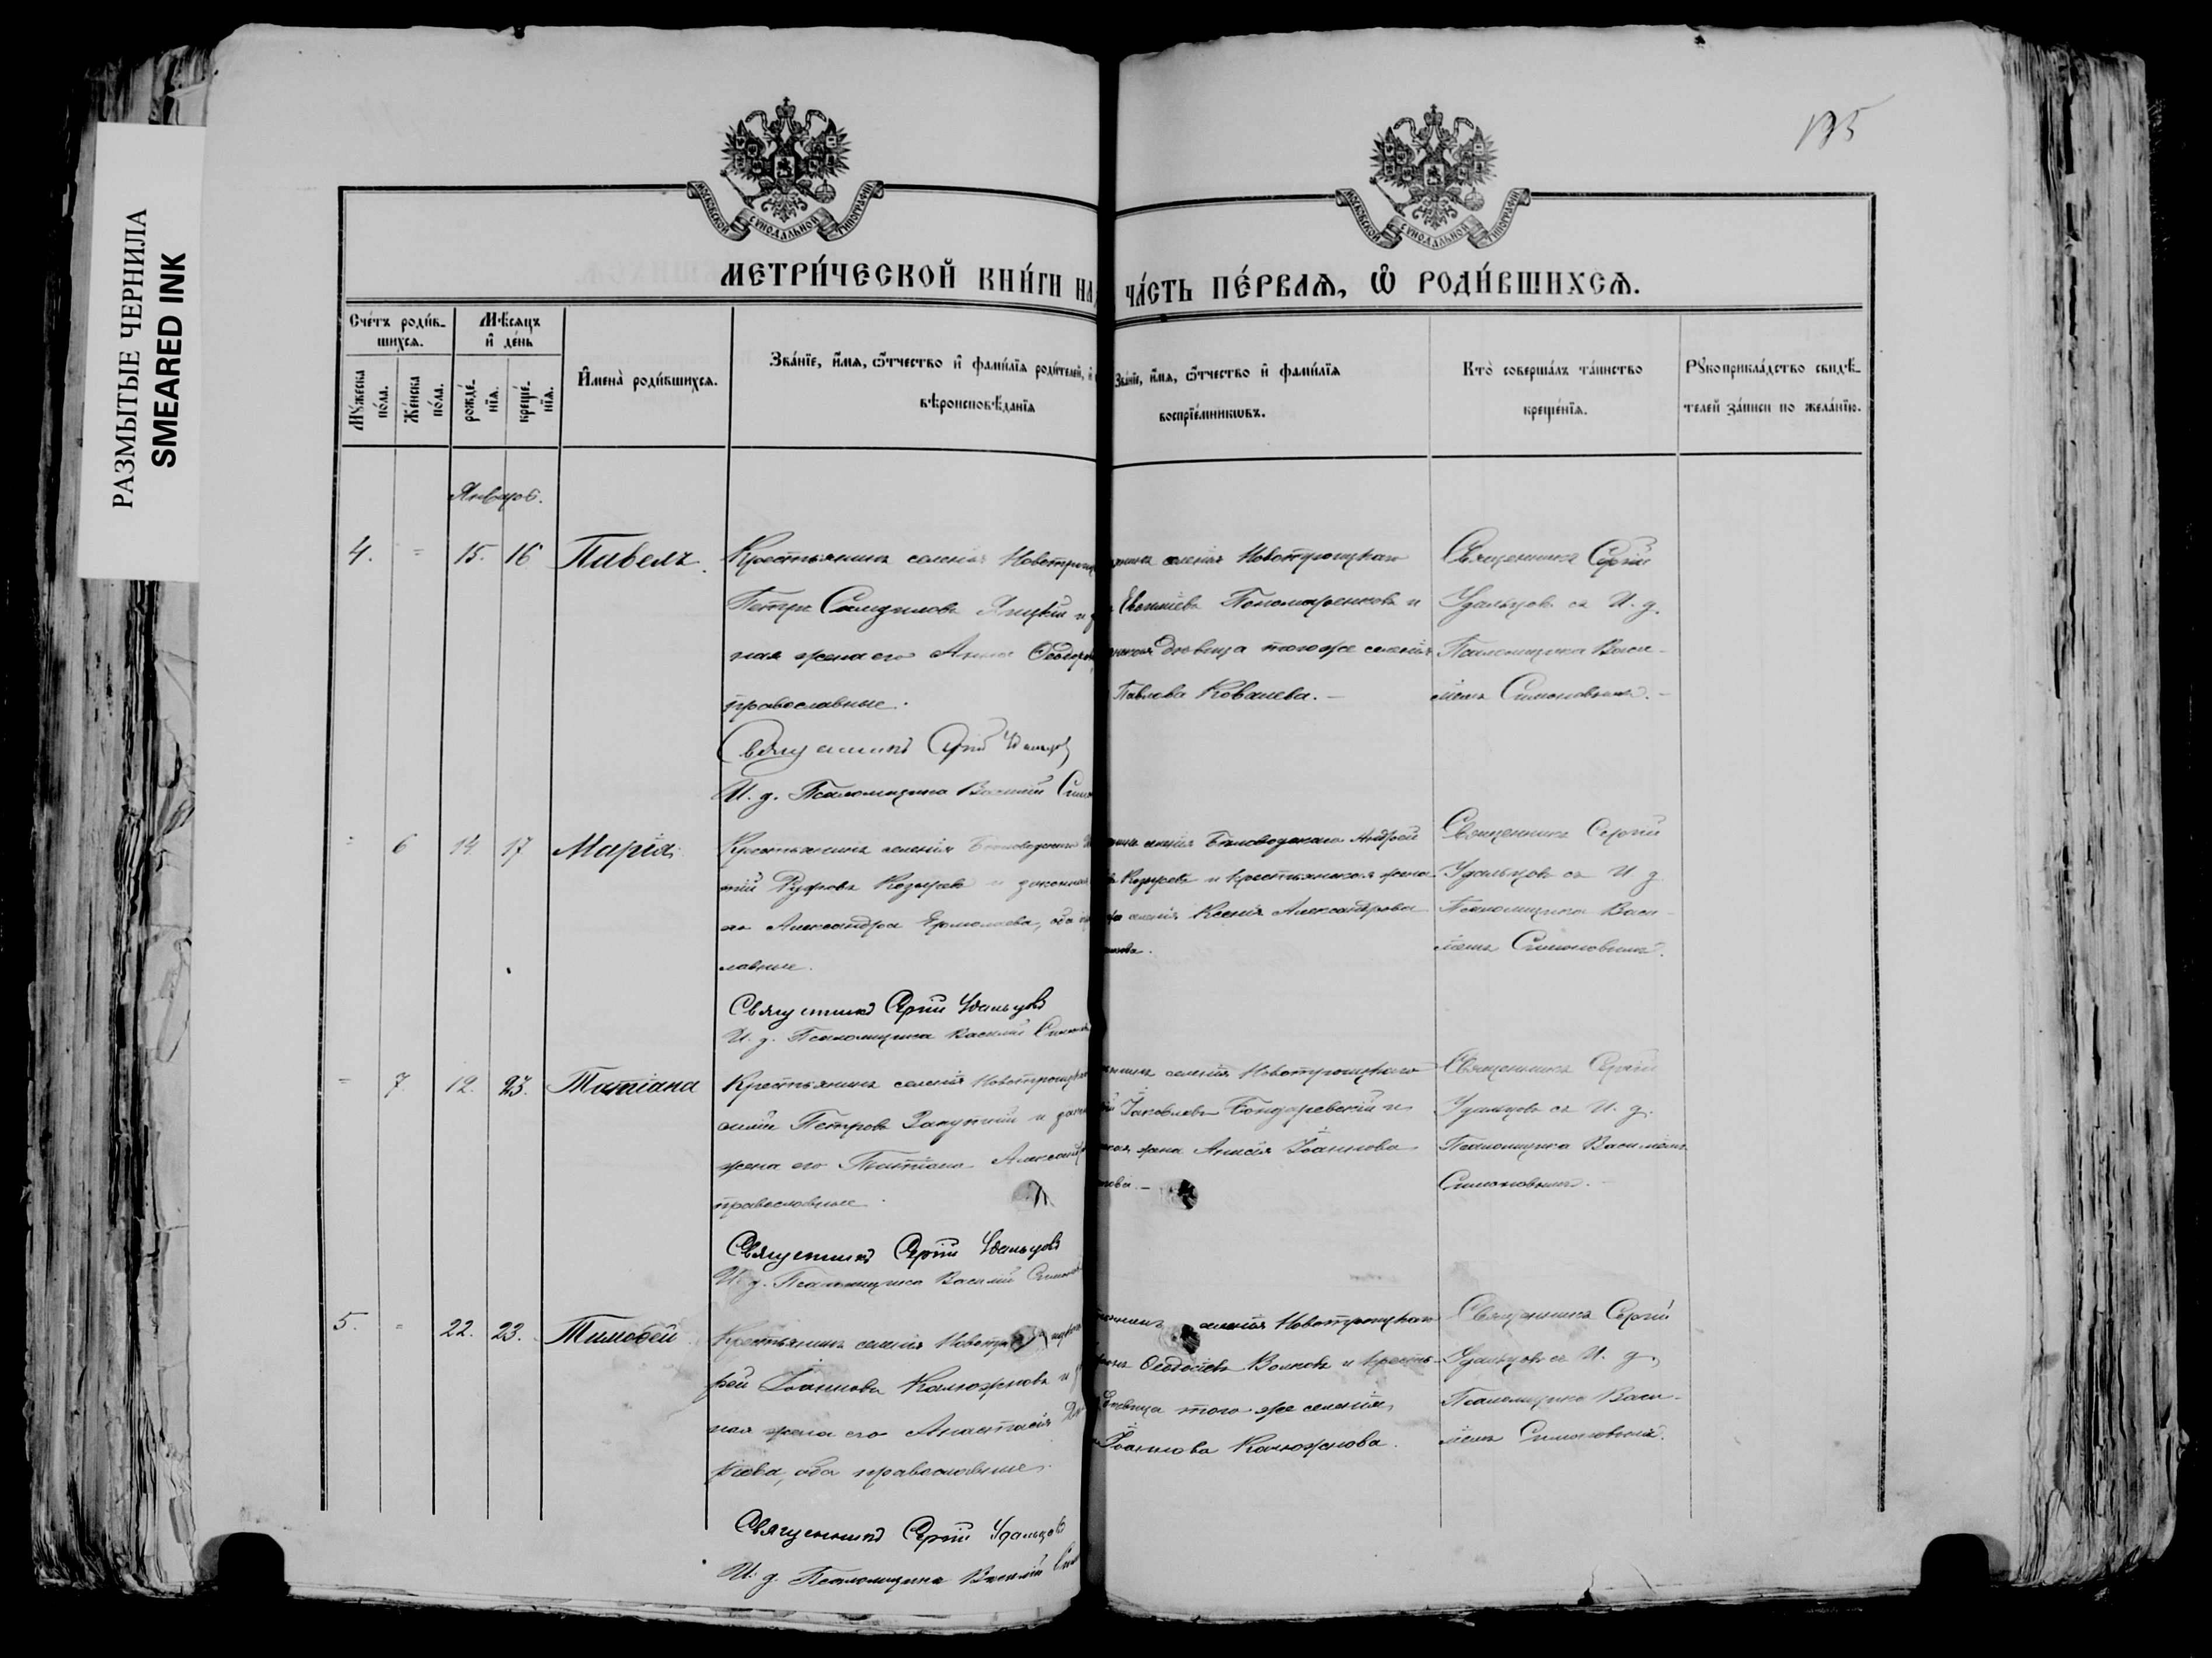 РАЗМЫТЫЕ ЧЕРНИЛА
SMEARED INK
135
МОСКОВСКОЙ СѴНОДАЛЬНОЙ ТИПОГРАФІИ
МОСКОВСКОЙ СѴНОДАЛЬНОЙ ТИПОГРАФІИ
МЕТРИ́ЧЕСКОЙ КНИ́ГИ НА
ЧА́СТЬ ПЕ́РВАѦ, Ѡ҆ РОДИ́ВШИХСѦ.
Сче́тъ роди́в-
шихсѧ.
Мѣ́сѧцъ
и҆ де́нь
Мꙋ́жеска
по́ла.
Же́нска
по́ла.
рожде́-
нїѧ.
креще́-
нїѧ.
И҆мена̀ роди́вшихсѧ.
Зва́нїе, и҆́мѧ, ѻ҆́тчество и҆ фами́лїѧ роди́телей, и҆
вѣроисповѣ́данїѧ
Зва́нїе, и҆́мѧ, ѻ҆́тчество и҆ фами́лїѧ
воспрїе́мниковъ.
Кто̀ соверша́лъ та́инство
креще́нїѧ.
Рꙋкоприкла́дство свидѣ́-
телей за́писи по жела́нїю.
Январь.
4. = 15. 16 Павелъ.
Крестьянинъ селенія Новотроиц
Петръ Самуиловъ и
ная жена его Анна Ѳеодоров
православные.
Священникъ Сергій Удальцов
И. д. Псаломщика Василій Симо
селенія Новотроицкаго
Евѳиміевъ Пономаренковъ и
дѣвица того же селенія
Павлова Ковалева. –
Священникъ Сергій
Удальцовъ съ И. д.
Псаломщика Васи-
ліемъ Симоновымъ. –
= 6 14. 17 Марія.
Крестьянинъ селенія Бѣловодскаго
тій Руфовъ Козыревъ и законная
его Александра Ермолаева, оба
лавные.
Священникъ Сергій Удальцовъ
И. д. Псаломщика Василій Симонов
селенія Бѣловодскаго Андрей
Козыревъ и крестьянская жена
селенія Ксенія Александрова
Священникъ Сергій
Удальцовъ съ И. д.
Псаломщика Васи-
ліемъ Симоновымъ.
= 7. 12. 23. Татіана
Крестьянинъ селенія Новотроицкаго
Петровъ и закон
жена его Татіана Александр
православные.
Священникъ Сергій Удальцовъ
И. д. Псаломщика Василій Симонов
селенія Новотроицкаго
Іаковлевъ Бондаревскій и
жена Анисія Іоаннова
Священникъ Сергій
Удальцовъ съ И. д.
Псаломщика Василіемъ
Симоновымъ. –
5. = 22. 23. Тимоѳей
Крестьянинъ селенія Новотроицкаго
рей Іоанновъ Калюжновъ и
ная жена его Анастасія
ріева, оба православные.
Священникъ Сергій Удальцовъ
И. д. Псаломщика Василій Сим
селенія Новотроицкаго
Ѳеодосіевъ Волковъ и кресть-
дѣвица того же селенія,
Іоаннова Калюжнова.
Священникъ Сергій
Удальцовъ съ И. д.
Псаломщика Васи-
ліемъ Симоновымъ.